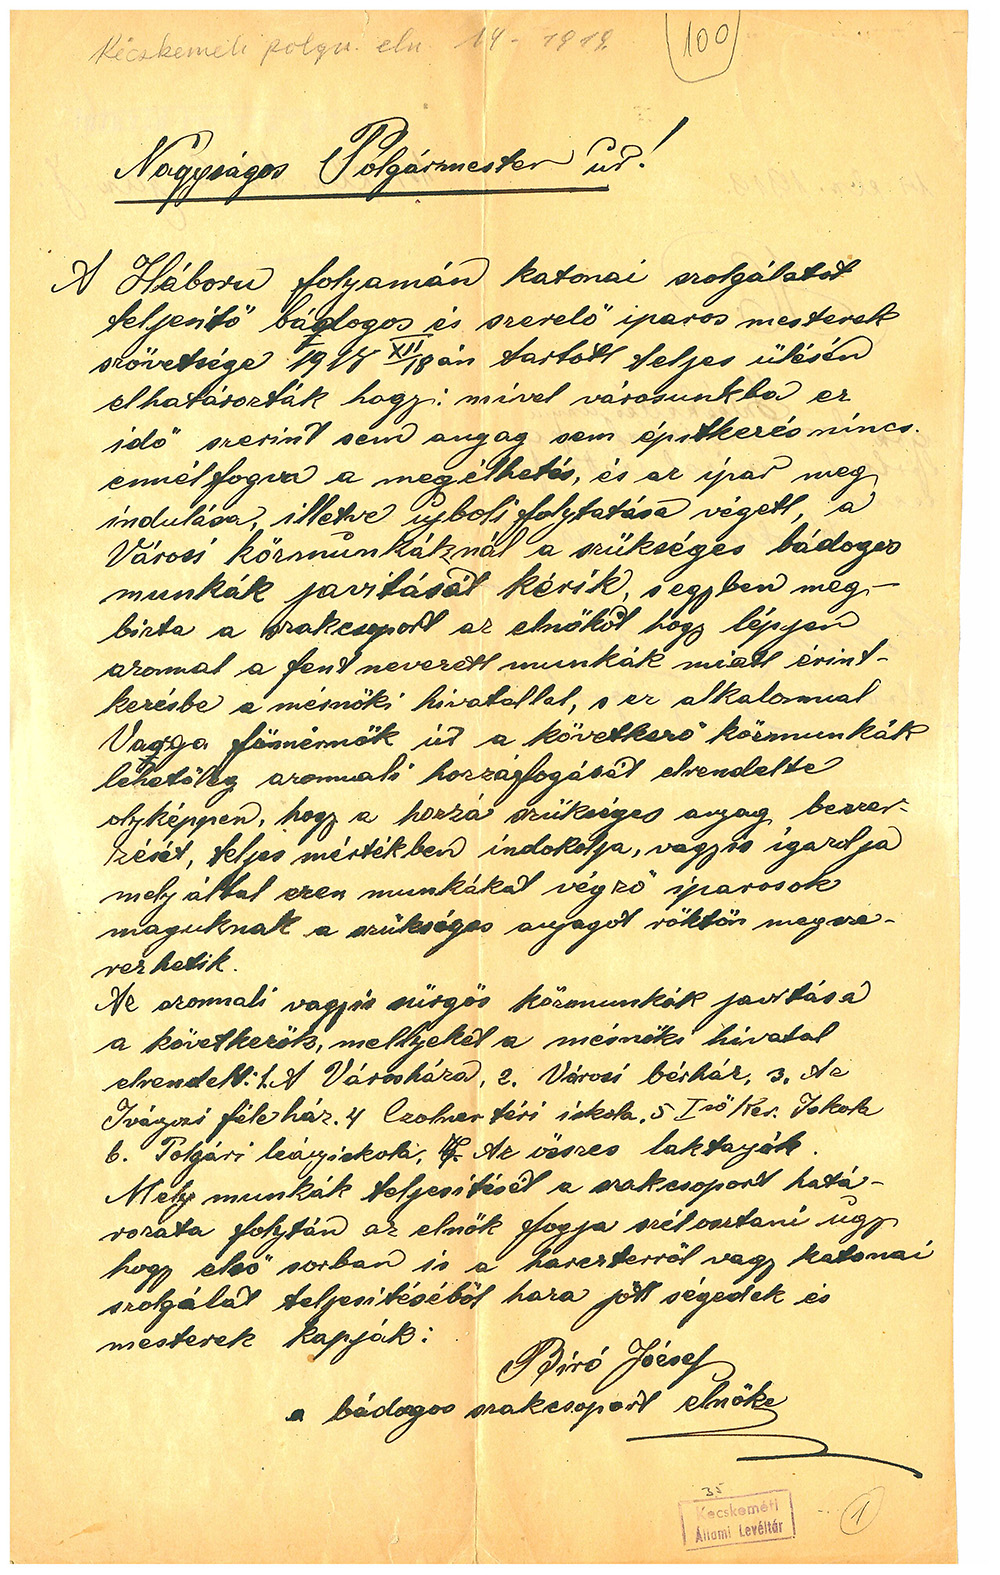 Kecskeméti polgm. eln. 14 - 1919.
100
Nagyságos Polgármester úr!
A Háboru folyamán katonai szolgálatot
teljesitő bádogos és szerelő iparos mesterek
szövetsége 1918 XII/18 án tartott teljes ülésén
elhatározták hogy: mivel városunkba ez
idő szerint sem anyag sem épitkezés nincs.
ennélfogva a megélhetés, és az ipar meg
indulása, illetve ujboli folytatása végett, a
Városi közmunkáknál a szükséges bádogos
munkák javitását kérik, s egyben meg-
bizta a szakcsoport az elnököt hogy lépjen
azonnal a fent nevezett munkák miatt érint-
kezésbe a mérnöki hivatallal, s ez alkalommal
Vagga főmérnök úr a következő közmunkák
lehetőleg azonnali hozzáfogását elrendelte
olyképpen, hogy a hozzá szükséges anyag beszer-
zését, teljes mértékben indokolja, vagyis igazolja
mely által ezen munkákat végző iparosok
maguknak a szükséges anyagot röktön megsze-
rezhetik.
Az azonnali vagyis sürgös közmunkák javitása
a következők, mellyeket a mérnöki hivatal
elrendelt: 1. A Városháza, 2. Városi bérház, 3. Az
Ivágozi féle ház. 4 Czolner téri iskola, 5 I ső Ker. Iskola
6. Polgári leányiskola, 7. Az összes laktanyák.
Mely munkák teljesitését a szakcsoport hatá-
rozata folytán az elnök fogja szétosztani úgy
hogy első sorban is a harczterről vagy katonai
szolgálat teljesitéséből haza jött ségedek és
mesterek kapják:
Biró József
a bádogos szakcsoport elnöke
35
Kecskeméti
Állami Levéltár
1